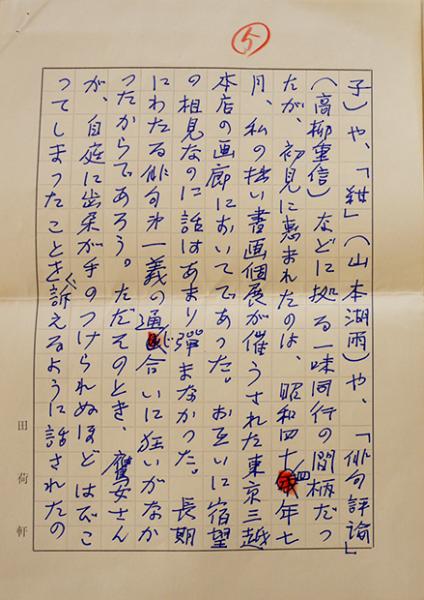 5
子)や、「紺」(山本湖雨)や、「俳句評論」
(高柳重信)などに拠る一味同行の間柄だっ
たが、初見に恵まれたのは、昭和四十四年七
月、私の拙い書画個展が催うされた東京三越
本店の画廊においてであった。お互いに宿望
の相見なのに話はあまり彈まなかった。長期
にわたる俳句第一義の通じ合いに狂いがなか
ったからであろう。ただそのとき、鷹女さん
が、自庭に朶が手のつけられぬほどはびこ
ってしまったことを訴えるように話されたの
田荷軒